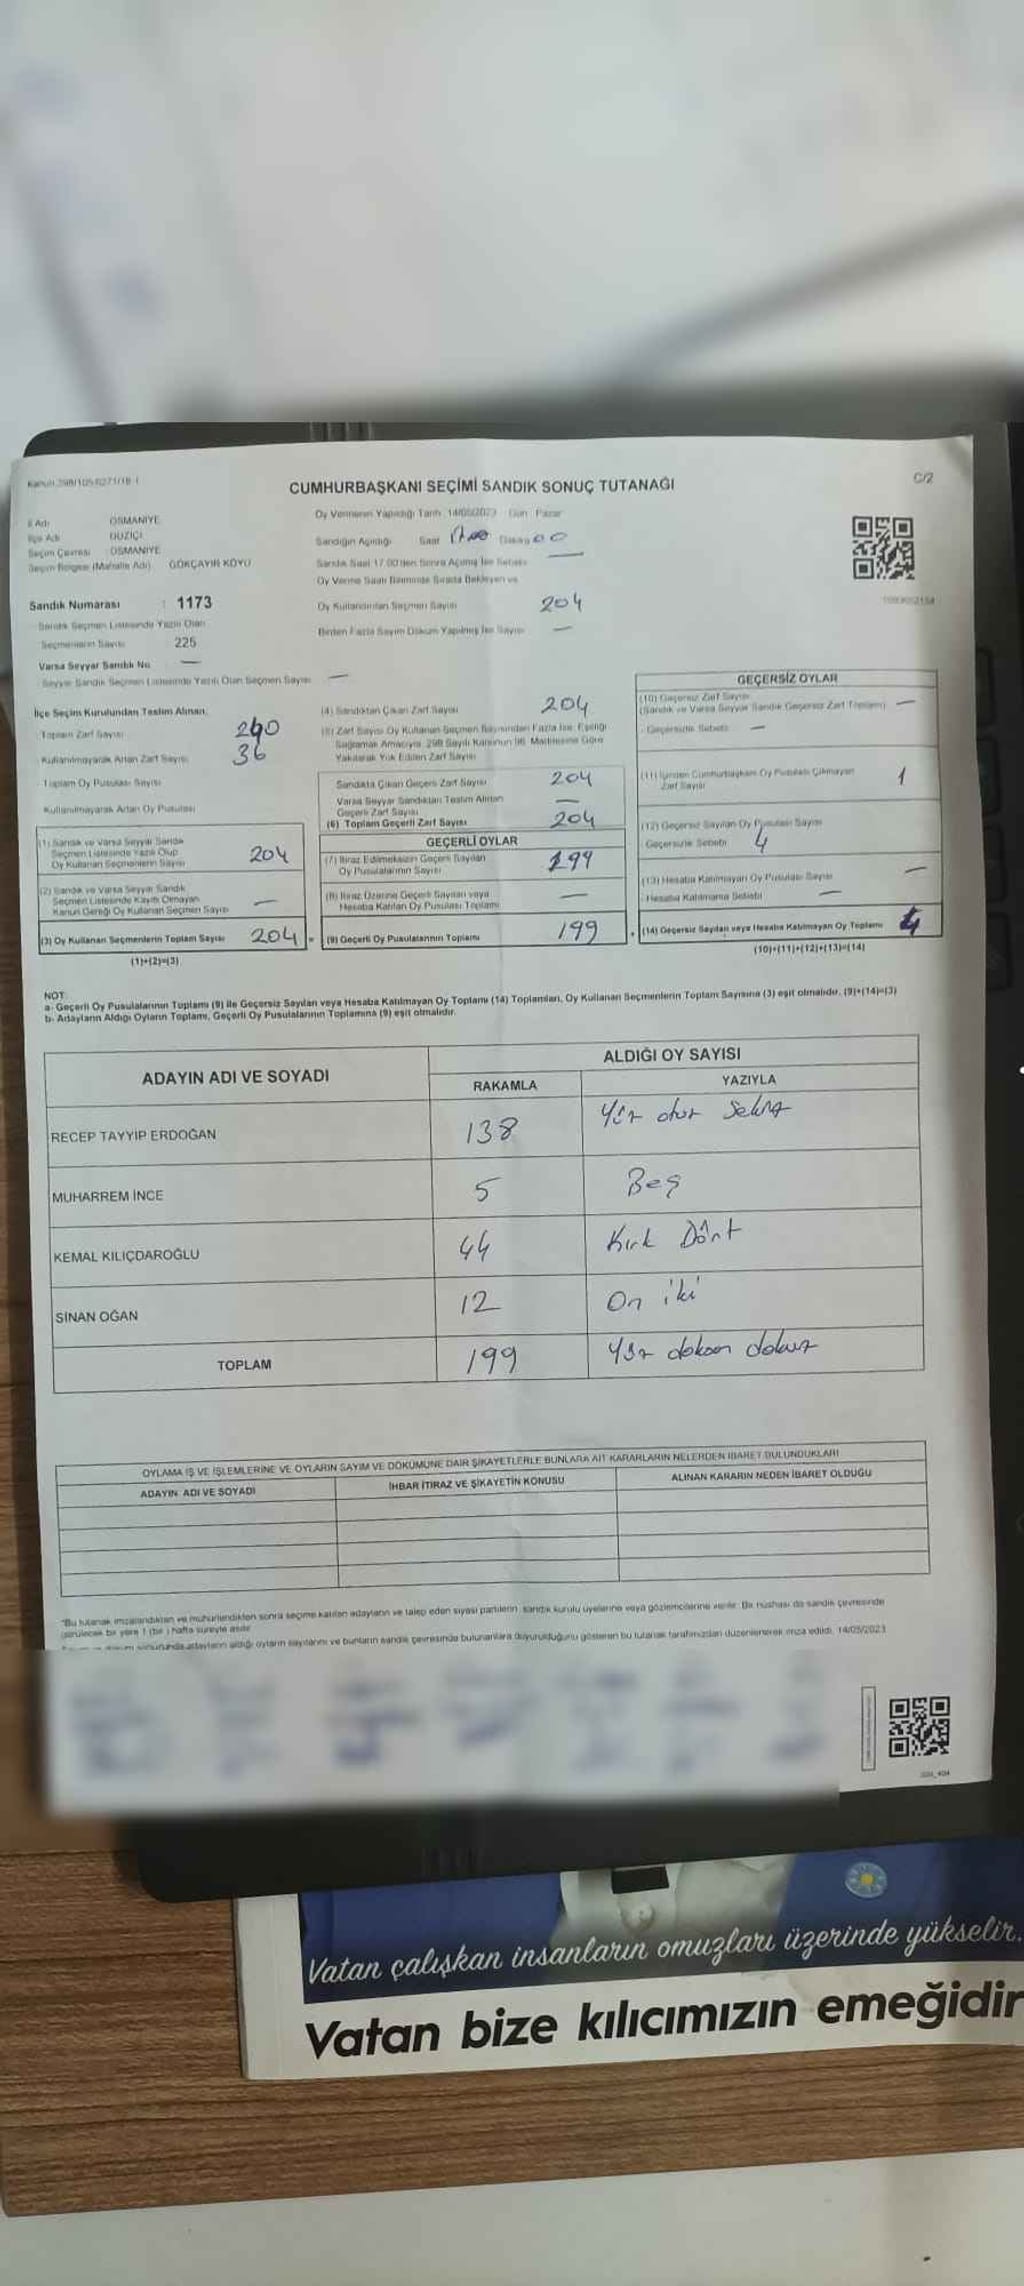 Kanun 298/105-6271/18-1
CUMHURBAŞKANI SEÇİMİ SANDIK SONUÇ TUTANAĞI
C/2
İl Adı OSMANİYE
İlçe Adı DÜZİÇİ
Seçim Çevresi OSMANİYE
Seçim Bölgesi (Mahalle Adı) GÖKÇAYIR KÖYÜ
Sandık Numarası : 1173
Sandık Seçmen Listesinde Yazılı Olan
Seçmenlerin Sayısı 225
Varsa Seyyar Sandık No —
Seyyar Sandık Seçmen Listesinde Yazılı Olan Seçmen Sayısı —
Oy Vermenin Yapıldığı Tarih 14/05/2023 Gün Pazar
Sandığın Açıldığı Saat 17:00 Dakika 00
Sandık Saat 17.00'den Sonra Açılmış İse Sebebi —
Oy Verme Saati Bitiminde Sırada Bekleyen ve
Oy Kullandırılan Seçmen Sayısı 204
Birden Fazla Sayım Döküm Yapılmış İse Sayısı —
İlçe Seçim Kurulundan Teslim Alınan;
Toplam Zarf Sayısı 240
Kullanılmayarak Artan Zarf Sayısı 36
Toplam Oy Pusulası Sayısı
Kullanılmayarak Artan Oy Pusulası
(1) Sandık ve Varsa Seyyar Sandık
Seçmen Listesinde Yazılı Olup
Oy Kullanan Seçmenlerin Sayısı 204
(2) Sandık ve Varsa Seyyar Sandık
Seçmen Listesinde Kayıtlı Olmayan
Kanun Gereği Oy Kullanan Seçmen Sayısı —
(3) Oy Kullanan Seçmenlerin Toplam Sayısı 204 =
(1)+(2)=(3)
(4) Sandıktan Çıkan Zarf Sayısı 204
(5) Zarf Sayısı Oy Kullanan Seçmen Sayısından Fazla İse; Eşitliği
Sağlamak Amacıyla, 298 Sayılı Kanunun 98. Maddesine Göre
Yakılarak Yok Edilen Zarf Sayısı
Sandıkta Çıkan Geçerli Zarf Sayısı 204
Varsa Seyyar Sandıktan Teslim Alınan
Geçerli Zarf Sayısı —
(6) Toplam Geçerli Zarf Sayısı 204
GEÇERLİ OYLAR
(7) İtiraz Edilmeksizin Geçerli Sayılan
Oy Pusulalarının Sayısı 199
(8) İtiraz Üzerine Geçerli Sayılan veya
Hesaba Katılan Oy Pusulası Toplamı —
(9) Geçerli Oy Pusulalarının Toplamı 199 +
GEÇERSİZ OYLAR
(10) Geçersiz Zarf Sayısı
(Sandık ve Varsa Seyyar Sandık Geçersiz Zarf Toplamı) —
Geçersizlik Sebebi —
(11) İçinden Cumhurbaşkanı Oy Pusulası Çıkmayan
Zarf Sayısı 1
(12) Geçersiz Sayılan Oy Pusulası Sayısı
Geçersizlik Sebebi 4
(13) Hesaba Katılmayan Oy Pusulası Sayısı —
Hesaba Katılmama Sebebi —
(14) Geçersiz Sayılan veya Hesaba Katılmayan Oy Toplamı
(10)+(11)+(12)+(13)=(14)
NOT:
a- Geçerli Oy Pusulalarının Toplamı (9) ile Geçersiz Sayılan veya Hesaba Katılmayan Oy Toplamı (14) Toplamları, Oy Kullanan Seçmenlerin Toplam Sayısına (3) eşit olmalıdır. (9)+(14)=(3)
b- Adayların Aldığı Oyların Toplamı, Geçerli Oy Pusulalarının Toplamına (9) eşit olmalıdır.
ADAYIN ADI VE SOYADI
ALDIĞI OY SAYISI
RAKAMLA YAZIYLA
RECEP TAYYİP ERDOĞAN 138 Yüz otuz Sekiz
MUHARREM İNCE 5 Beş
KEMAL KILIÇDAROĞLU 44 Kırk Dört
SİNAN OĞAN 12 On iki
TOPLAM 199 Yüz doksan dokuz
OYLAMA İŞ VE İŞLEMLERİNE VE OYLARIN SAYIM VE DÖKÜMÜNE DAİR ŞİKAYETLERLE BUNLARA AİT KARARLARIN NELERDEN İBARET BULUNDUKLARI
ADAYIN ADI VE SOYADI İHBAR İTİRAZ VE ŞİKAYETİN KONUSU ALINAN KARARIN NEDEN İBARET OLDUĞU
*Bu tutanak imzalandıktan ve mühürlendikten sonra seçime katılan adayların ve talep eden siyasi partilerin, sandık kurulu üyelerine veya gözlemcilerine verilir. Bir nüshası da sandık çevresinde
görülecek bir yere 1 (bir ) hafta süreyle asılır.
sonunda adayların aldığı oyların sayılarını ve bunların sandık çevresinde bulunanlara duyurulduğunu gösteren bu tutanak tarafımızdan düzenlenerek imza edildi. 14/05/2023
Vatan çalışkan insanların omuzları üzerinde yükselir.
Vatan bize kılıcımızın emeğidir